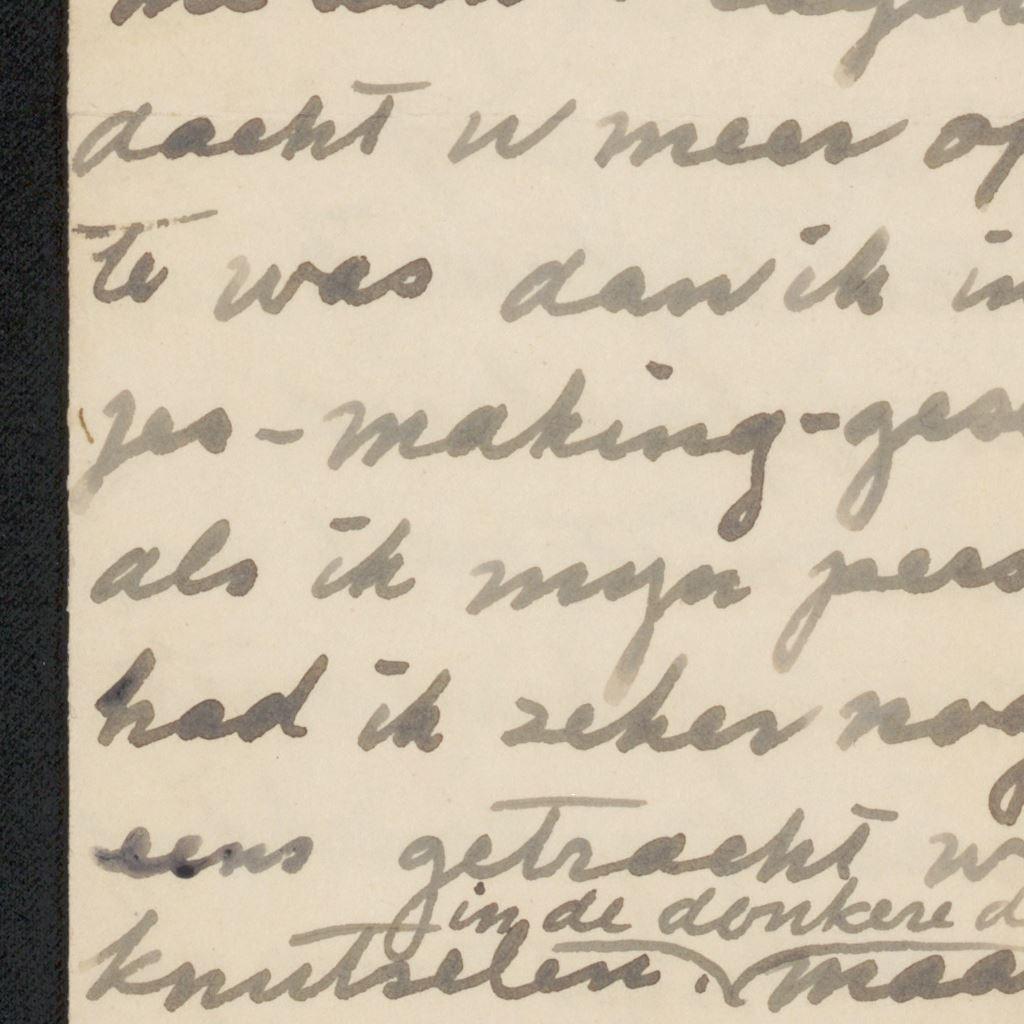 dacht u meer op
te was dan ik in
jes-making-ges
als ik mijn pers
had ik zeker nog
eens getracht w
in de donkere d
knutselen. maa